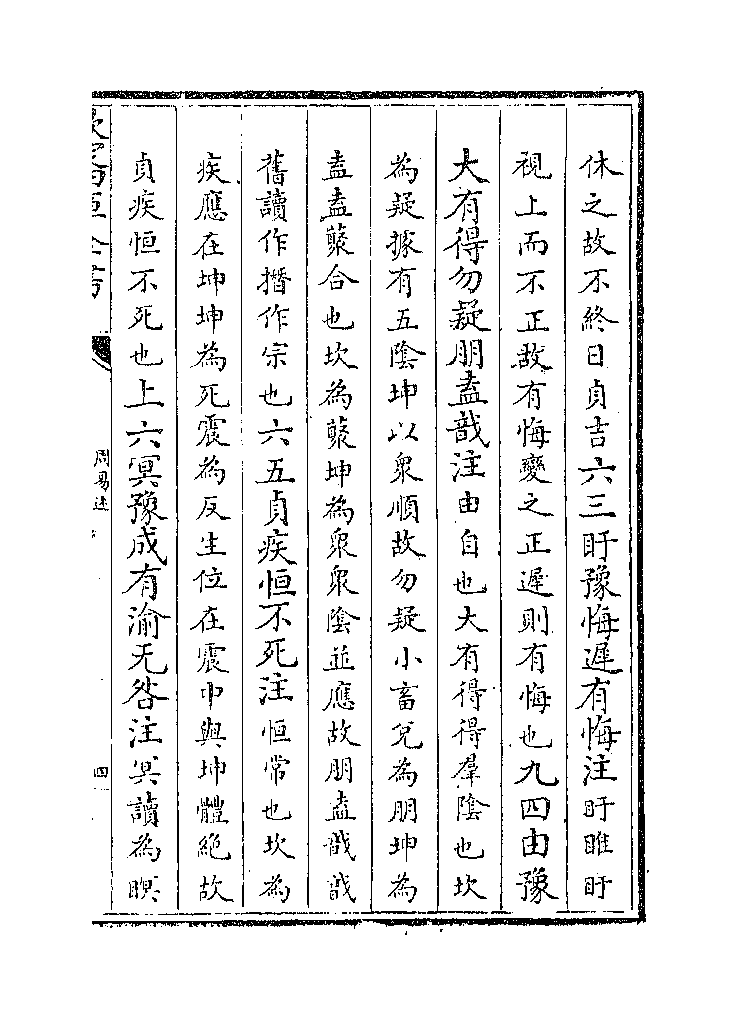 休之故不終日貞吉六三盱豫悔遲有悔注盱睢盱
視上而不正故有悔變之正遲則有悔也九四由豫
大有得勿疑朋盍戠注由自也大有得得羣陰也坎
為疑據有五陰坤以衆順故勿疑小畜兌為朋坤為
盍盍聚合也坎為聚坤為衆衆陰並應故朋盍戠戠
舊讀作撍作宗也六五貞疾恒不死注恒常也坎為
疾應在坤坤為死震為反生位在震中與坤體絶故
貞疾恒不死也上六冥豫成有渝无咎注冥讀為瞑
周易述
四